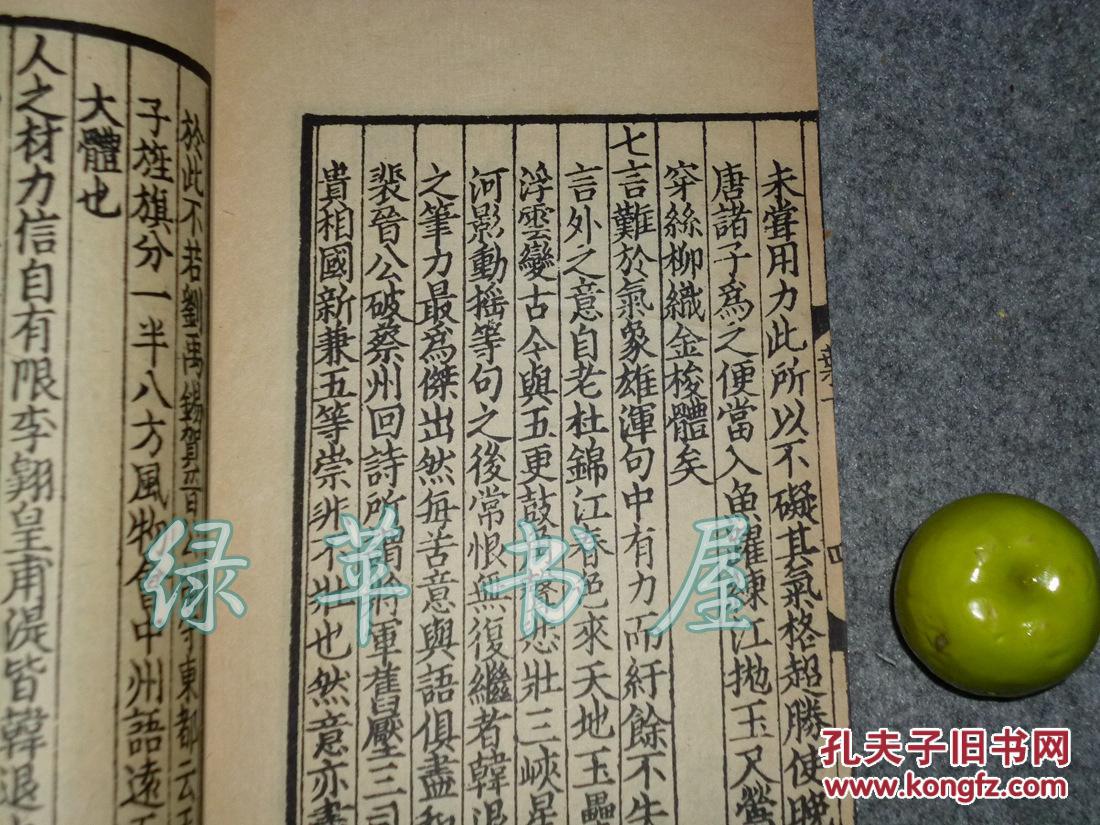 未嘗用力此所以不礙其氣格超勝使晚
唐諸子爲之便當入魚躍練江抛玉尺鶯
穿絲柳織金梭體矣
七言難於氣象雄渾句中有力而紆餘不失
言外之意自老杜錦江春色來天地玉壘
浮雲變古今與五更鼓角聲悲壯三峽星
河影動摇等句之後常恨無復繼者韓退
之筆力最爲傑出然每苦意與語俱盡和
裴晉公破蔡州回詩所謂將軍舊壓三司
貴相國新兼五等崇非不壯也然意亦盡
於此不若劉禹錫賀晉公東都云
子旌旗分一半八方風物中州語遠
大體也
人之材力信自有限李翱皇甫湜皆韓退
四
绿苹书屋
孔夫子旧书网
www.kongfz.com